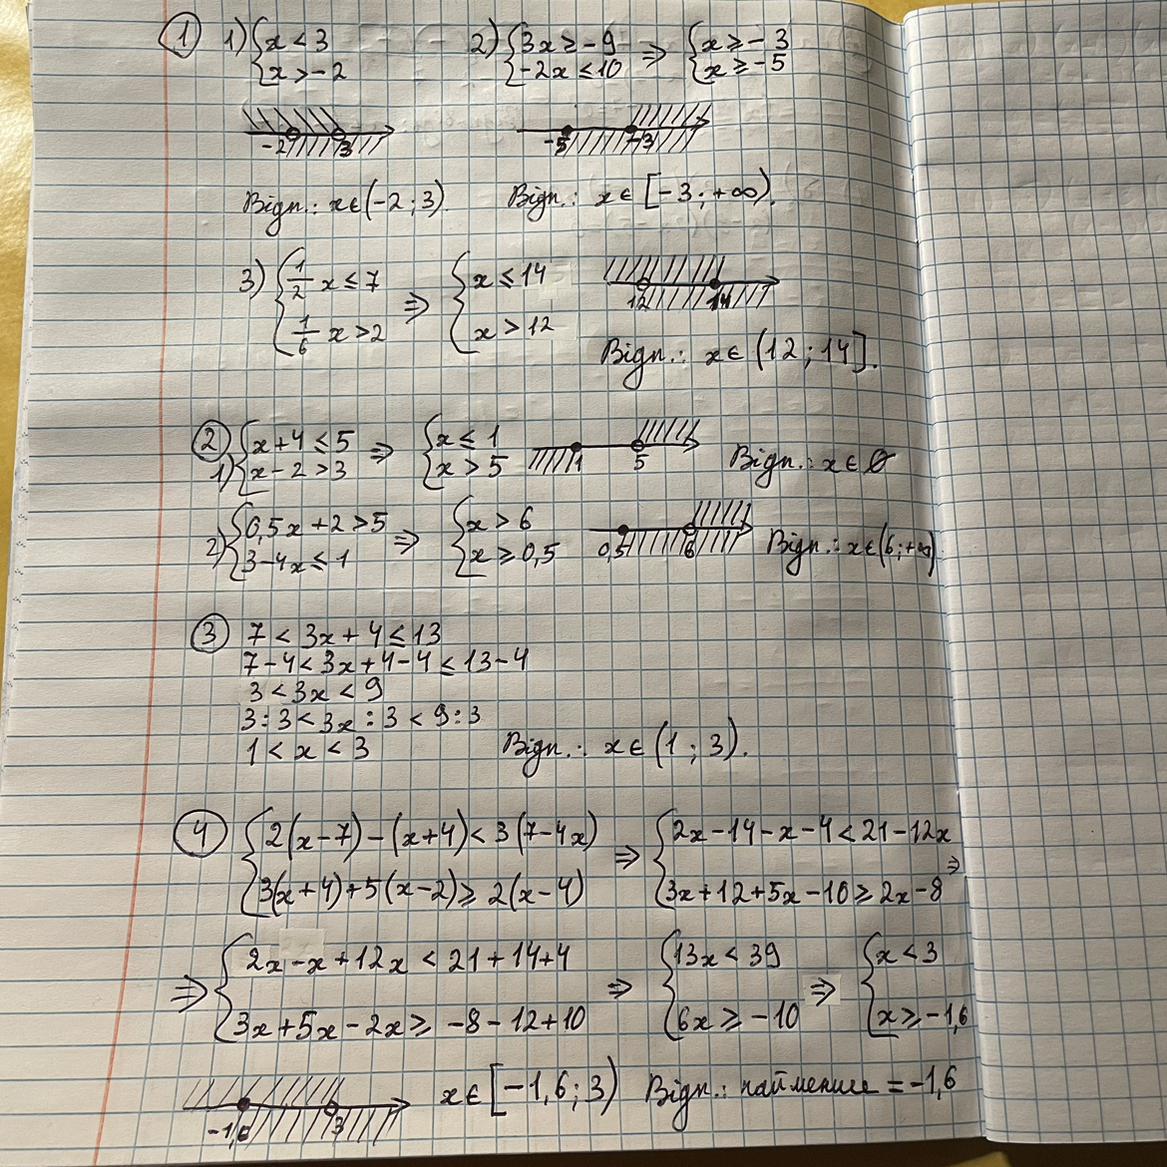 ① 1) { x < 3 2) { 3x ≥ -9 ⇒ { x ≥ -3
{ x > -2 { -2x ≤ 10 { x ≥ -5
-2 3 -5 -3
Відп.: x∈(-2; 3). Відп.: x∈[-3; +∞).
3) { 1/2 x ≤ 7 ⇒ { x ≤ 14
{ 1/6 x > 2 { x > 12
12 14
Відп.: x∈(12; 14].
② 1) { x+4 ≤ 5 ⇒ { x ≤ 1
{ x-2 > 3 { x > 5
1 5 Відп.: x∈∅
2) { 0,5x+2 > 5 ⇒ { x > 6
{ 3-4x ≤ 1 { x ≥ 0,5
0,5 6 Відп.: x∈(6; +∞)
③ 7 < 3x+4 ≤ 13
7-4 < 3x+4-4 ≤ 13-4
3 < 3x < 9
3:3 < 3x:3 < 9:3
1 < x < 3 Відп.: x∈(1; 3).
④ { 2(x-7)-(x+4) < 3(7-4x) ⇒ { 2x-14-x-4 < 21-12x ⇒
{ 3(x+4)+5(x-2) ≥ 2(x-4) { 3x+12+5x-10 ≥ 2x-8
⇒ { 2x-x+12x < 21+14+4 ⇒ { 13x < 39 ⇒ { x < 3
{ 3x+5x-2x ≥ -8-12+10 { 6x ≥ -10 { x ≥ -1,6
-1,6 3 x∈[-1,6; 3) Відп.: найменше = -1,6